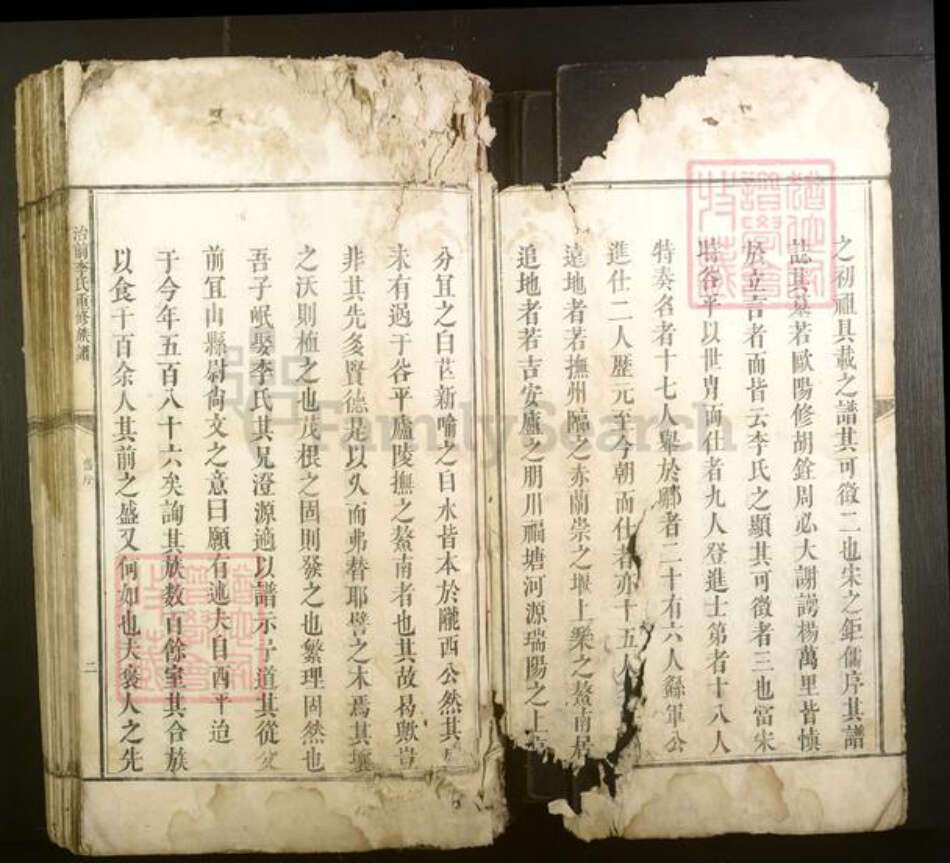 之初祖具載之譜其可徵二也宋之鉅儒序其譜
誌其墓若歐陽修胡銓周必大謝諤楊萬里皆慎
於立言者而皆云李氏之顯其可徵者三也當宋
時谷平以世冑而仕者九人登進士第者十八人
特奏名者十七人舉於鄉者二十有六人餘軍公
進仕二人歷元至今朝而仕者亦十五人
遠地者若撫州臨之赤蘭崇之堰上樂之鰲南居
追地者若吉安廬之朋川福塘河源瑞陽之上
分宜之白芒新喻之白水皆本於隴西公然其
未有過于谷平廬陵撫之鰲南者也其故易歟豈
非其先多賢德是以久而弗替耶譬之木焉其壤
之沃則植之也茂根之固則發之也繁理固然也
吾子岷娶李氏其兄澄源適以譜示予道其從父
前宜山縣尉尚文之意曰願有述夫自西平迨
于今年五百八十六矣詢其族數百餘室其合族
以食千百余人其前之盛又何如也夫褒人之先
李氏重修族譜
舊序
二
FamilySearch